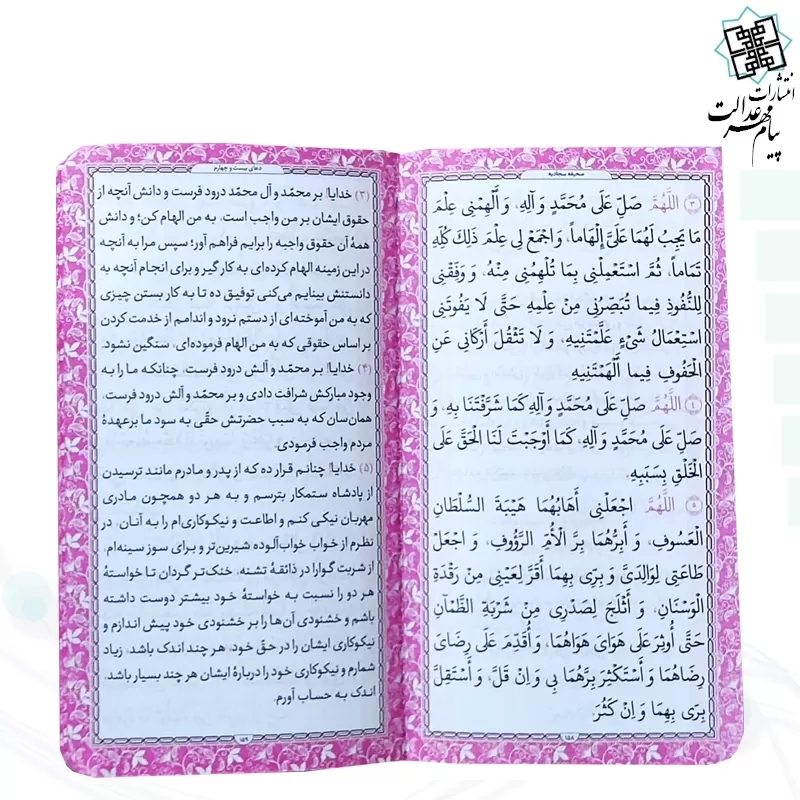 انتشارات
پیام مهر عدالت
صحیفه سجادیه
(۳) اللَّهُمَّ صَلِّ عَلَى مُحَمَّدٍ وَآلِهِ، وَ أَلْهِمْنِي عِلْمَ
مَا يَجِبُ لَهُمَا عَلَيَّ إِلْهَاماً، وَ اجْمَعْ لِي عِلْمَ ذَلِكَ كُلِّهِ
تَمَاماً، ثُمَّ اسْتَعْمِلْنِي بِمَا تُلْهِمُنِي مِنْهُ، وَ وَفِّقْنِي
لِلنُّفُوذِ فِيمَا تُبَصِّرُنِي مِنْ عِلْمِهِ حَتَّى لَا يَفُوتَنِي
اسْتِعْمَالُ شَيْءٍ عَلَّمْتَنِيهِ، وَ لَا تَثْقُلَ أَرْكَانِي عَنِ
الْحُفُوفِ فِيمَا أَلْهَمْتَنِيهِ
(٤) اللَّهُمَّ صَلِّ عَلَى مُحَمَّدٍ وَآلِهِ كَمَا شَرَّفْتَنَا بِهِ، وَ
صَلِّ عَلَى مُحَمَّدٍ وَآلِهِ، كَمَا أَوْجَبْتَ لَنَا الْحَقَّ عَلَى
الْخَلْقِ بِسَبَبِهِ.
(٥) اللَّهُمَّ اجْعَلْنِي أَهَابُهُمَا هَيْبَةَ السُّلْطَانِ
الْعَسُوفِ، وَ أَبَرُّهُمَا بِرَّ الْأُمِّ الرَّؤُوفِ، وَ اجْعَلْ
طَاعَتِي لِوَالِدَيَّ وَ بِرِّي بِهِمَا أَقَرَّ لِعَيْنِي مِنْ رَقْدَةِ
الْوَسْنَانِ، وَ أَثْلَجَ لِصَدْرِي مِنْ شَرْبَةِ الظَّمْآنِ
حَتَّى أُوثِرَ عَلَى هَوَايَ هَوَاهُمَا، وَ أُقَدِّمَ عَلَى رِضَايَ
رِضَاهُمَا وَ أَسْتَكْثِرَ بِرَّهُمَا بِي وَ إِنْ قَلَّ، وَ أَسْتَقِلَّ
بِرِّي بِهِمَا وَ إِنْ كَثُرَ.
۱۵۸
دعای بیست و چهارم
(۳) خدایا! بر محمّد و آل محمّد درود فرست و دانش آنچه از
حقوق ایشان بر من واجب است، به من الهام کن؛ و دانش
همهٔ آن حقوق واجبه را برایم فراهم آور؛ سپس مرا به آنچه
در این زمینه الهام کرده‌ای به کار گیر و برای انجام آنچه به
دانستنش بینایم می‌کنی توفیق ده تا به کار بستن چیزی
که به من آموخته‌ای از دستم نرود و اندامم از خدمت کردن
بر اساس حقوقی که به من الهام فرموده‌ای، سنگین نشود.
(۴) خدایا! بر محمّد و آلش درود فرست، چنانکه ما را به
وجود مبارکش شرافت دادی و بر محمّد و آلش درود فرست،
همان‌سان که به سبب حضرتش حقّی به سود ما بر عهدهٔ
مردم واجب فرمودی.
(۵) خدایا! چنانم قرار ده که از پدر و مادرم مانند ترسیدن
از پادشاه ستمکار بترسم و به هر دو همچون مادری
مهربان نیکی کنم و اطاعت و نیکوکاری‌ام را به آنان، در
نظرم از خواب خواب‌آلوده شیرین‌تر و برای سوز سینه‌ام،
از شربت گوارا در ذائقهٔ تشنه، خنک‌تر گردان تا خواستهٔ
هر دو را نسبت به خواستهٔ خود بیشتر دوست داشته
باشم و خشنودی آن‌ها را بر خشنودی خود پیش اندازم و
نیکوکاری ایشان را در حقّ خود، هر چند اندک باشد، زیاد
شمارم و نیکوکاری خود را دربارهٔ ایشان هر چند بسیار باشد،
اندک به حساب آورم.
۱۵۹